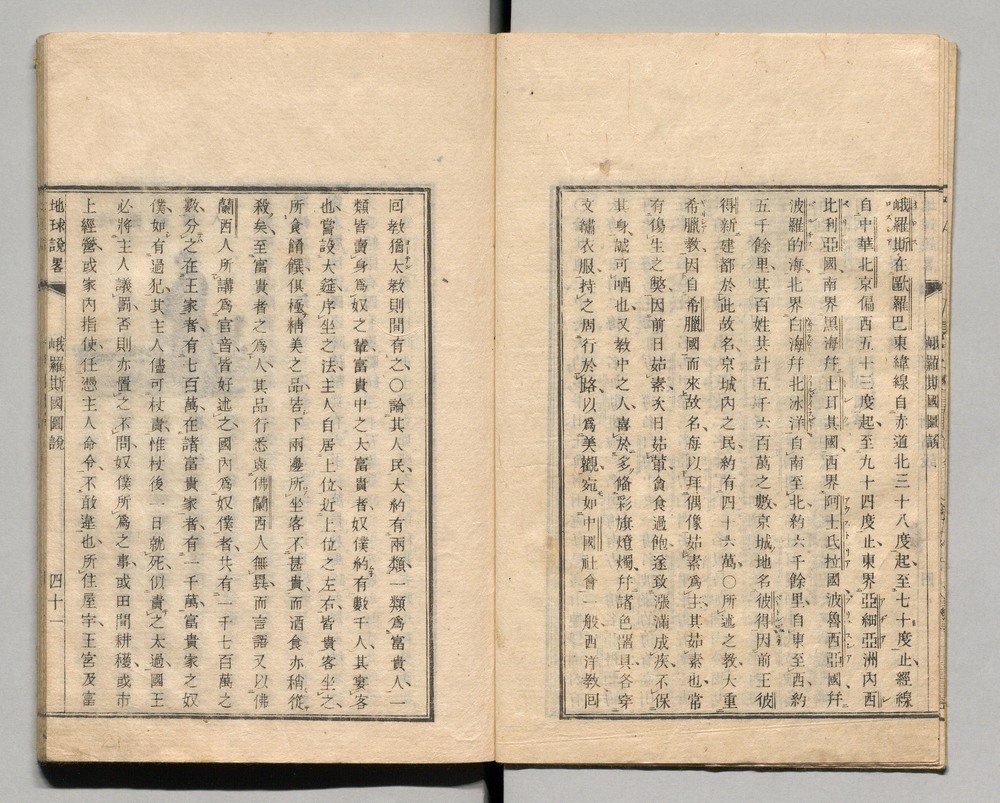 峨羅斯國圖說
峨羅斯在歐羅巴東緯線自赤道北三十八度起至七十度止經線
自中華北京偏西五十三度起至九十四度止東界亞細亞洲內西
比利亞國南界黑海幷土耳其國西界阿士氐拉國波魯西亞國幷
波羅的海北界白海幷北冰洋自南至北約六千餘里自東至西約
五千餘里其百姓共計五千六百萬之數京城地名彼得因前王彼
得新建都於此故名京城內之民約有四十六萬〇所述之教大重
希臘教因自希臘國而來故名每以拜偶像姑素爲主其姑素也常
有傷生之獘因前日姑素次日姑葷貪食過飽遂致漲滿成疾不保
其身誠可哂也又教中之人喜於多偹彩旗燈燭幷諸色器具各穿
文繡衣服持之周行於路以爲美觀宛如中國社會一般西洋教回
回教猶太教則間有之〇論其人民大約有兩類一類爲富貴人一
類皆賣身爲奴之輩富貴中之大富貴者奴僕約有數千人其宴客
也嘗設大筵序坐之法主人自居上位近上位之左右皆貴客坐之
所食餚饌俱極精美之品若下兩邊所坐客不甚貴而酒食亦稍從
殺矣至富貴者之爲人其品行悉與佛蘭西人無異而言語又以佛
蘭西人所講爲官音皆好述之國內爲奴僕者共有一千七百萬之
數分之在王家者有七百萬在諸富貴家者有一千萬富貴家之奴
僕如有過犯其主人儘可杖責惟杖後一日就死似責之太過國王
必將主人議罰否則亦置之不問奴僕所爲之事或田間耕穫或市
上經營或家內指使任憑主人命令不敢違也所住屋宇王宮及富
地球說畧
峨羅斯國圖說
四十一